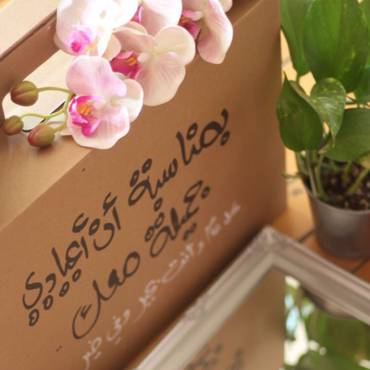 بمناسبة أن أعيادي
جميلة معك
كل عام وأنت بخير وفي خير